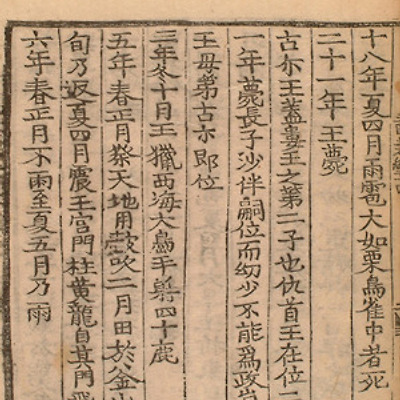 十八年夏四月雨雹大如栗鳥雀中者死
二十一年王薨
古尒王蓋婁王之第二子也仇首王在位二
一年薨長子沙伴嗣位而幼少不能爲政肖
王母弟古尒即位
三年冬十月王獵西海大島手䠶四十鹿
五年春正月祭天地用鼓吹二月田於釜山
旬乃返夏四月震王宮門柱黃龍自其門飛
六年春正月不雨至夏五月乃雨